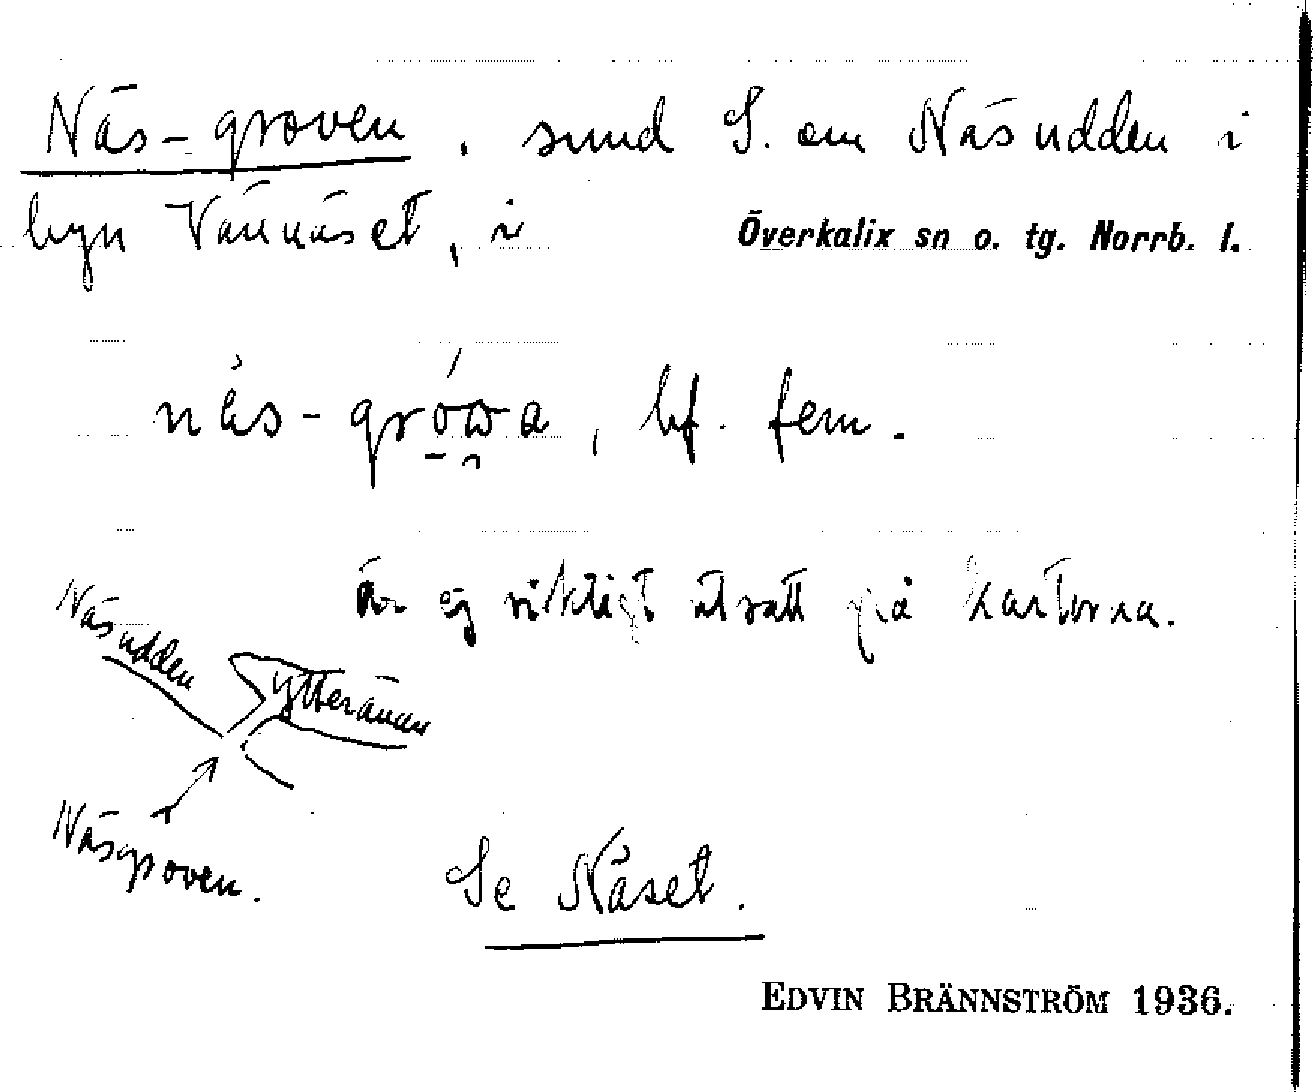 Näs-groven, sund S. om Näsudden i
byn Vännäset, i Överkalix sn o. tg. Norrb. l.
nä̀s-grówa, bf. fem.
är ej riktigt utsatt på kartorna.
Näsudden
Ytterånan
Näsgroven.
Se Näset.
EDVIN BRÄNNSTRÖM 1936.